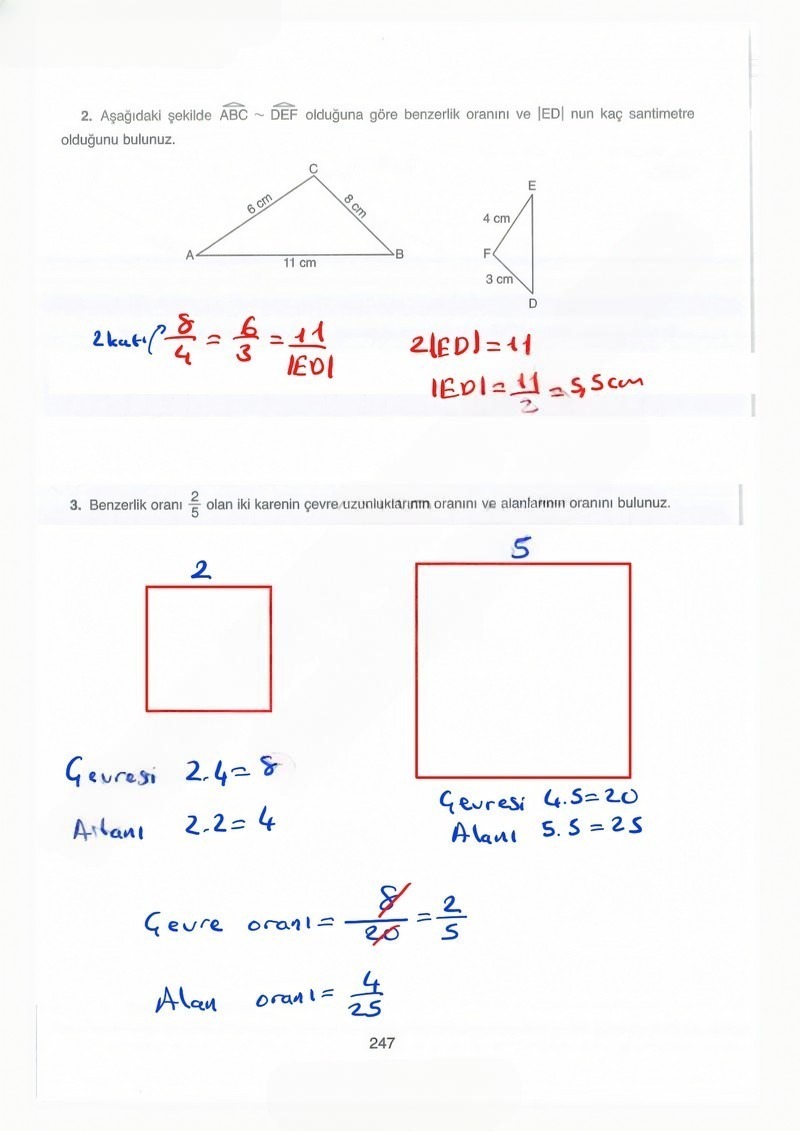 2. Aşağıdaki şekilde ABC ~ DEF olduğuna göre benzerlik oranını ve |ED| nun kaç santimetre
olduğunu bulunuz.
C
6 cm
8 cm
A
B
11 cm
E
4 cm
F
3 cm
D
2 katı 8/4 = 6/3 = 11/|ED|
2|ED| = 11
|ED| = 11/2 = 5,5 cm
3. Benzerlik oranı 2/5 olan iki karenin çevre uzunluklarının oranını ve alanlarının oranını bulunuz.
2
5
Çevresi 2.4 = 8
Alanı 2.2 = 4
Çevresi 4.5 = 20
Alanı 5.5 = 25
Çevre oranı = 8/20 = 2/5
Alan oranı = 4/25
247